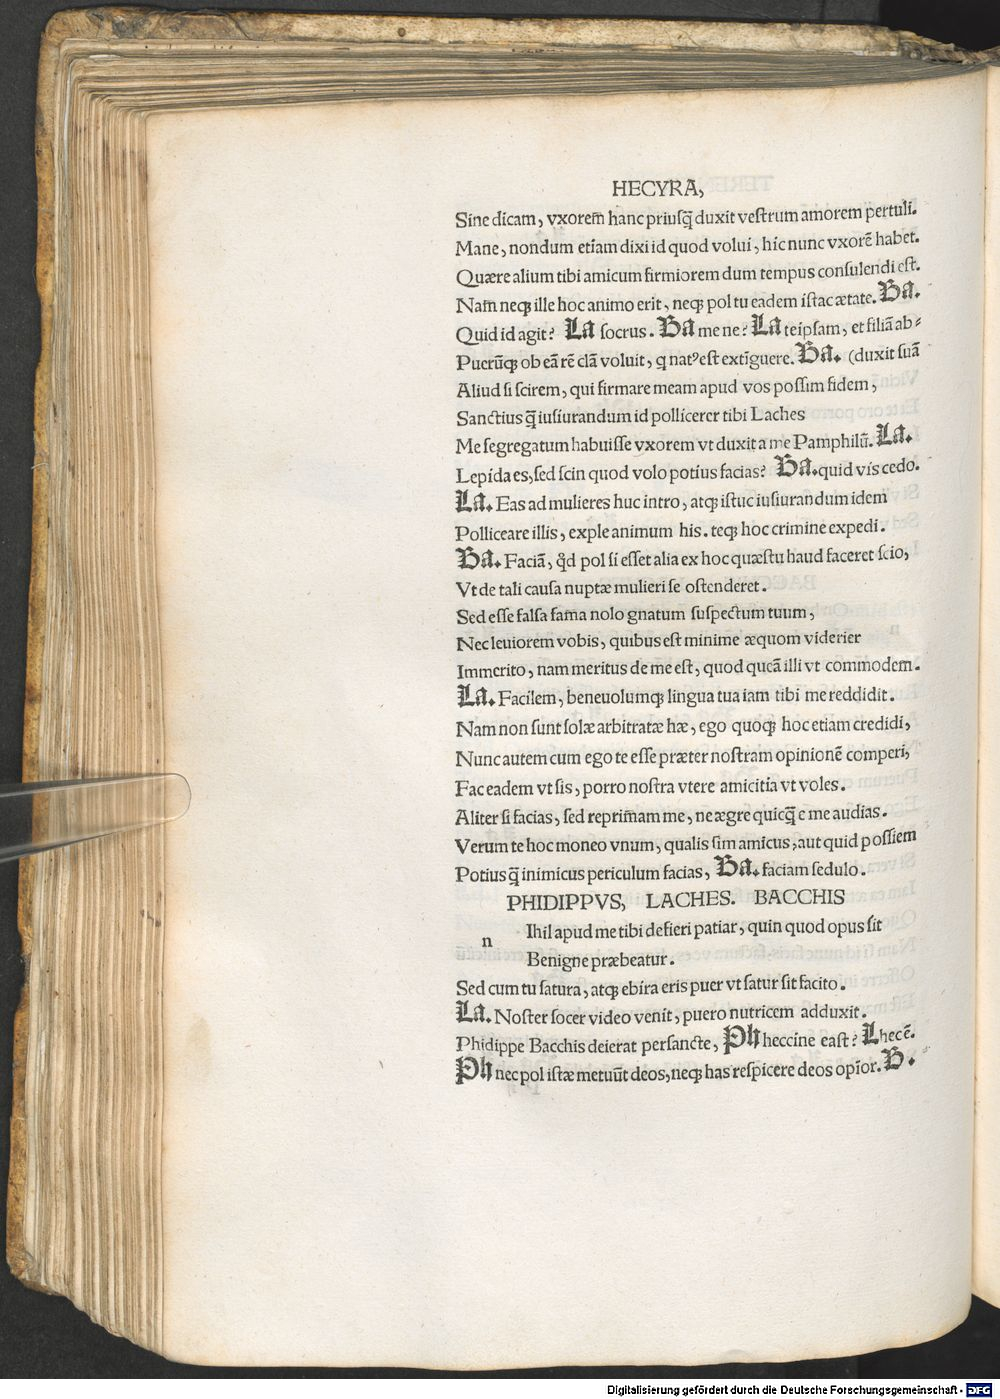 HECYRA,
Sine dicam, vxorem̄ hanc priusq̄ duxit vestrum amorem pertuli.
Mane, nondum etiam dixi id quod volui, hic nunc vxorē habet.
Quære alium tibi amicum firmiorem dum tempus consulendi est.
Nam̄ neqꝫ ille hoc animo erit, neqꝫ pol tu eadem istac ætate. Ba.
Quid id agit? La socrus. Ba mene? La teipsam, et filiā ab⸗
Puerūqꝫ ob eā rē clā voluit, q natꝰ est extīguere. Ba. (duxit suā
Aliud si scirem, qui firmare meam apud vos possim fidem,
Sanctius q̄ iusiurandum id pollicerer tibi Laches
Me segregatum habuisse vxorem vt duxit a me Pamphilū. La.
Lepida es, sed scin quod volo potius facias? Ba. quid vis cedo.
La. Eas ad mulieres huc intro, atqꝫ istuc iusiurandum idem
Polliceare illis, exple animum his. teqꝫ hoc crimine expedi.
Ba. Faciā, qd̄ pol si esset alia ex hoc quæstu haud faceret scio,
Vt de tali causa nuptæ mulieri se ostenderet.
Sed esse falsa fama nolo gnatum suspectum tuum,
Nec leuiorem vobis, quibus est minime æquom viderier
Immerito, nam meritus de me est, quod queā illi vt commodem.
La. Facilem, beneuolumqꝫ lingua tua iam tibi me reddidit.
Nam non sunt solæ arbitratæ hæ, ego quoqꝫ hoc etiam credidi,
Nunc autem cum ego te esse præter nostram opinionē comperi,
Fac eadem vt sis, porro nostra vtere amicitia vt voles.
Aliter si facias, sed reprim̄am me, ne ægre quicq̄ e me audias.
Verum te hoc moneo vnum, qualis sim amicus, aut quid possiem
Potius q̄ inimicus periculum facias, Ba. faciam sedulo.
PHIDIPPVS, LACHES. BACCHIS
n Ihil apud me tibi defieri patiar, quin quod opus sit
Benigne præbeatur.
Sed cum tu satura, atqꝫ ebira eris puer vt satur sit facito.
La. Noster socer video venit, puero nutricem adduxit.
Phidippe Bacchis deierat persancte, Ph heccine east? L hec ē.
Ph nec pol istæ metuūt deos, neqꝫ has respicere deos opīor. B.
Digitalisierung gefördert durch die Deutsche Forschungsgemeinschaft - DFG